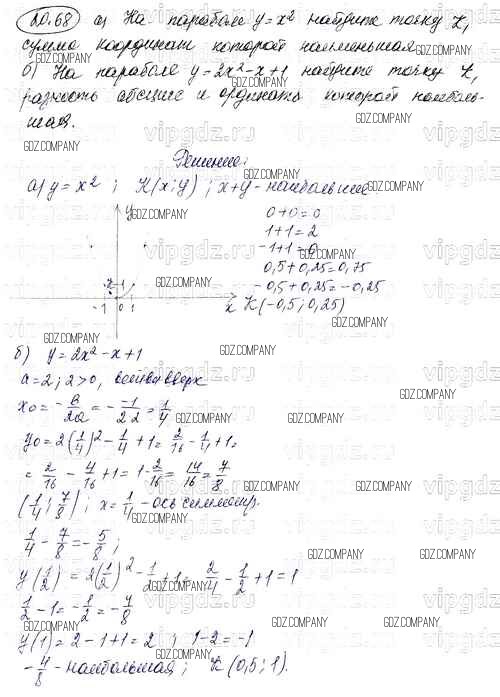 20.68 а) На параболе y=x² найдите точку K,
сумма координат которой наименьшая.
б) На параболе y=2x²-x+1 найдите точку K,
разность абсцисс и ординаты которой наиболь-
шая.
Решение:
а) y=x² ; K(x;y) ; x+y - наибольшие
y
0+0=0
1+1=2
-1+1=0
0,5+0,25=0,75
-0,5+0,25=-0,25
-1 0 1 x K(-0,5; 0,25)
б) y=2x²-x+1
a=2; 2>0, ветви вверх
x₀=-в/2а=-(-1)/2·2=1/4
y₀=2(1/4)²-1/4+1=2/16-1/4+1=
=2/16-4/16+1=1-2/16=14/16=7/8
(1/4; 7/8); x=1/4 - ось симметр.
1/4-7/8=-5/8;
y(1/2)=2(1/2)²-1/2+1=2/4-1/2+1=1
1/2-1=-1/2=-4/8
y(1)=2-1+1=2 ; 1-2=-1
-4/8 - наибольшая; K(0,5; 1).